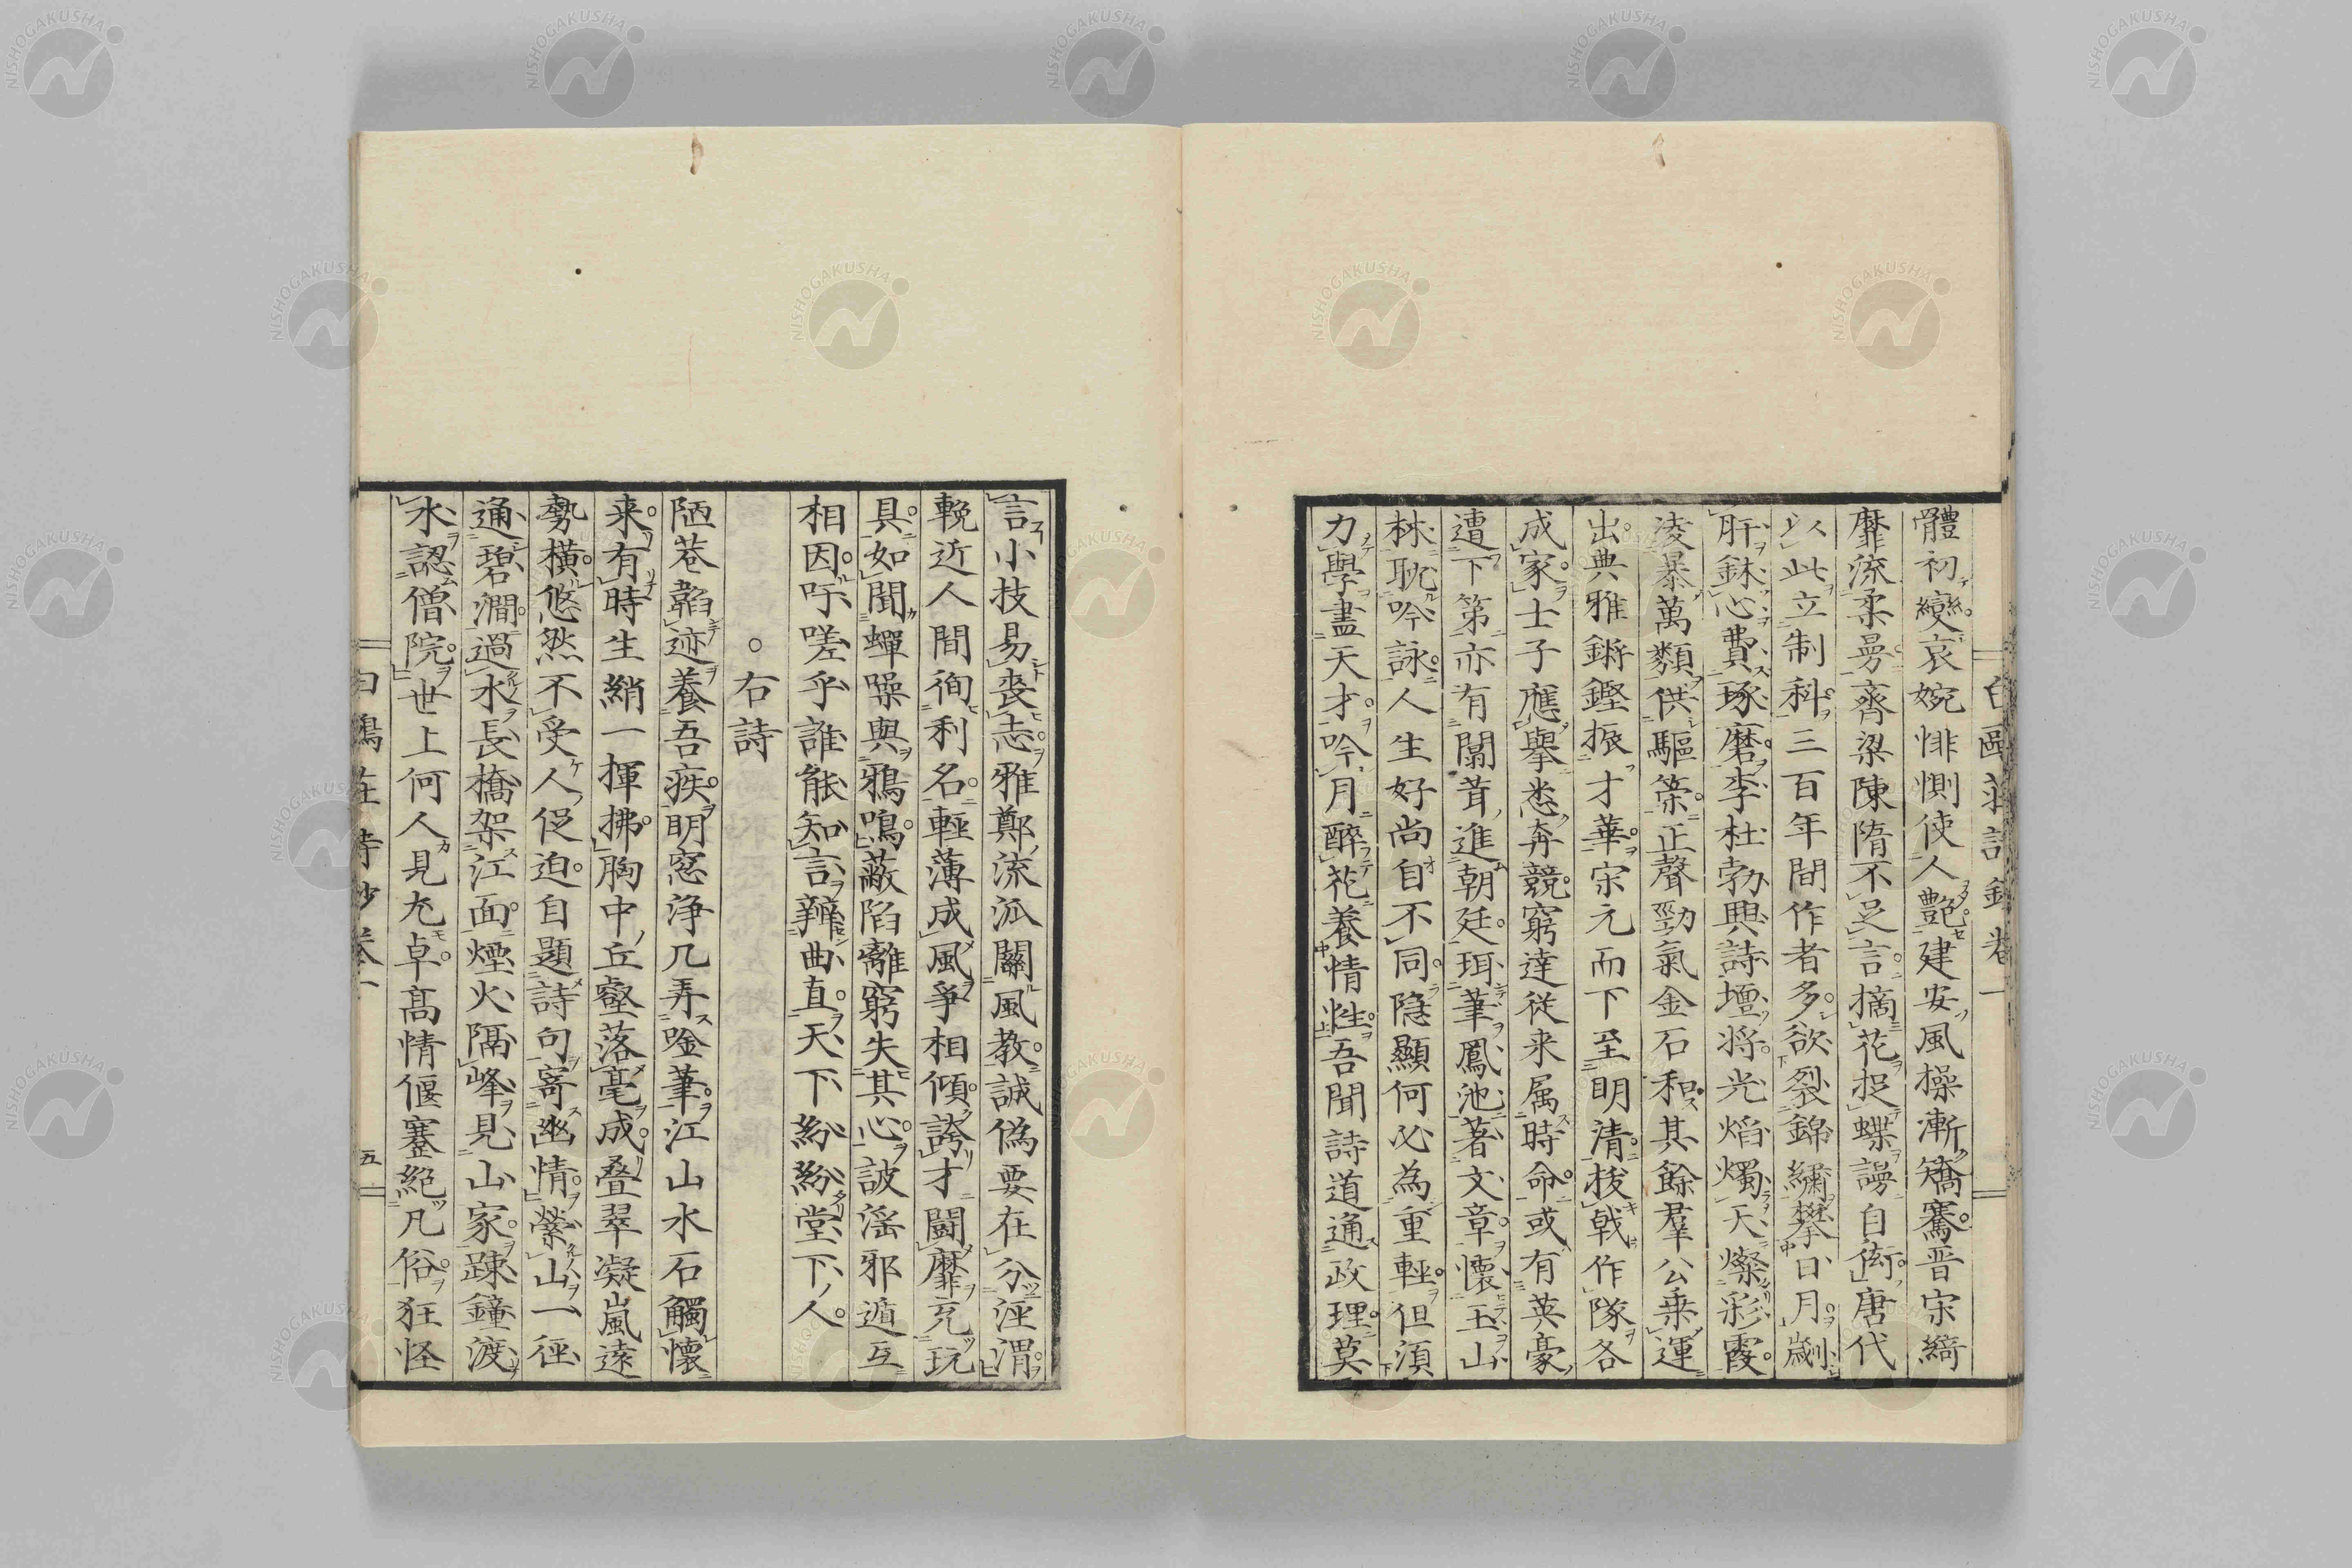 體初變哀婉悱惻使人艷建安風操漸矯騫晋宋綺
靡流柔曼齊梁陳隋不足言摘花捉蝶謾自衒唐代
以此立制科三百年間作者多欲裂錦繡攀日月劌
肝鉥心費琢磨李杜勃興詩壇將光焰燭天燦彩霞
淩暴萬類供驅策正聲勁氣金石和其餘羣公乘運
出典雅鏘鏗振才華宋元而下至明清拔戟作隊各
成家士子應擧悉奔競窮達從来属時命或有英豪
遭下第亦有闒茸進朝廷珥筆鳳池著文章懷玉山
林耽吟詠人生好尚自不同隐顯何必為重輕但須
力學盡天才吟月醉花養情性吾聞詩道通政理莫
言小技易喪志雅鄭流派關風教誠偽要在分涇渭
輓近人間徇利名輕薄成風爭相傾誇才闘靡充玩
具如聞蟬噪與鴉鳴蔽陷離窮失其心詖淫邪遁互
相因吁嗟乎誰能知言辨曲直天下紛紛堂下人
右詩
陋巷韜迹養吾疾明窓浄几弄唫筆江山水石觸懷
来有時生綃一揮拂胸中丘壑落毫成疊翠凝嵐遠
勢横悠然不受人促迫自題詩句寄幽情縈山一徑
通碧澗過水長橋架江面煙火隔峰見山家踈鐘渡
水認僧院世上何人見尤卓髙情偃蹇絶凡俗狂怪
五